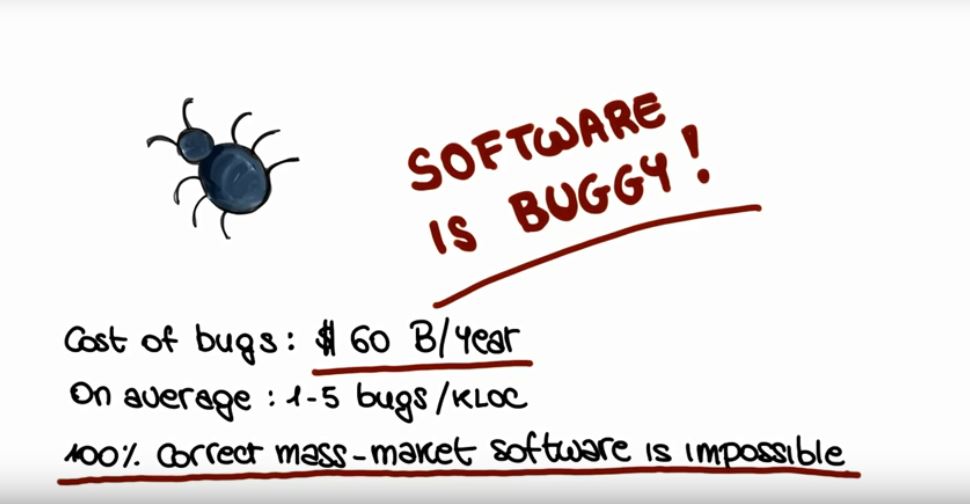 SOFTWARE
IS BUGGY!
Cost of bugs: $60 B/year
On average: 1-5 bugs/KLOC
100% correct mass-market software is impossible